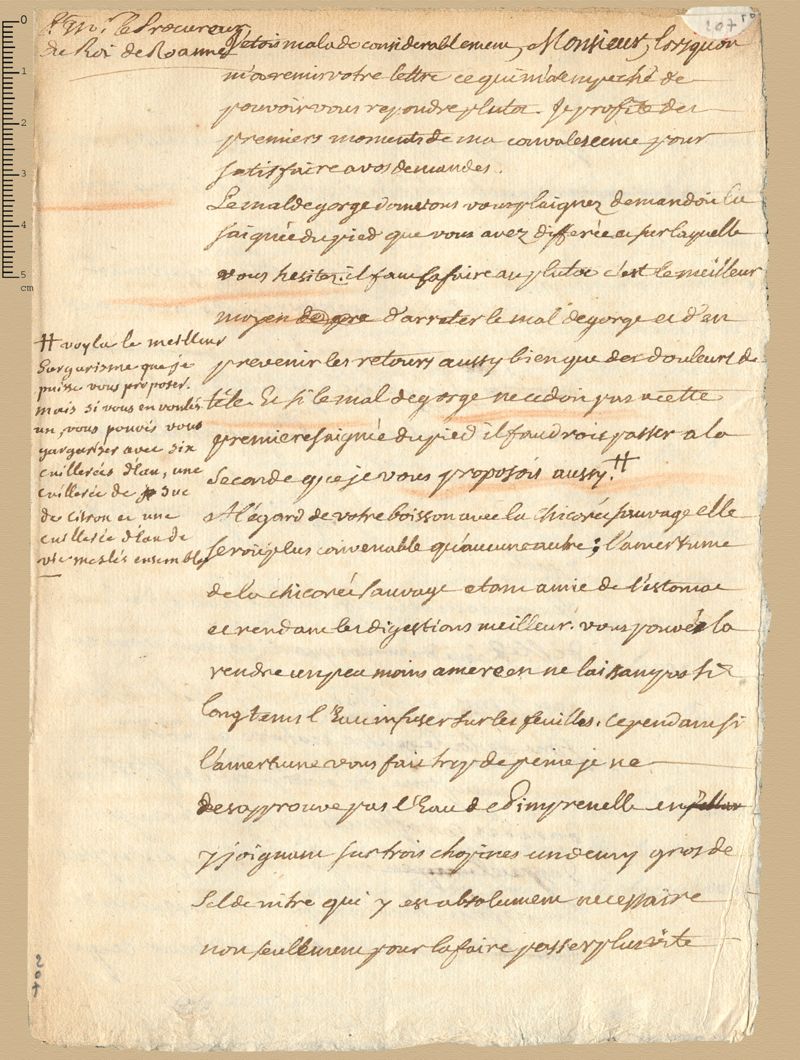 A Mr. le Procureur
du Roi de Roanne
J'etois malade considerablement, Monsieur, lorsqu'on
m'a remis votre lettre ce qui m'a empeché de
pouvoir vous repondre plutot. Je profite des
premiers moments de ma convalescence pour
satisfaire a vos demandes.
Le mal de gorge dont vous vous plaignez demandoit la
saignée du pied que vous avez differée et sur laquelle
vous hesitez. il faut la faire au plutot c'est le meilleur
moyen d'arreter le mal de gorge et d'en
prevenir les retours aussy bien que des douleurs de
tête. Et si le mal de gorge ne cedoit pas a cette
premiere saignée du pied il faudroit passer a la
seconde que je vous proposois aussy. #
# voyla le meilleur
gargarisme que je
puisse vous proposer.
mais si vous en voulés
un, vous pouvés vous
gargariser avec six
cuillerées d'eau, une
cuillerée de suc
de citron et une
cuillerée d'eau de
vie meslés ensemble
A l'égard de votre boisson avec la chicorée sauvage elle
seroit plus convenable qu'aucune autre; l'amertume
de la chicorée sauvage etant amie de l'estomac
et rendant les digestions meilleur. vous pouvés la
rendre un peu moins amere en ne laissant pas si
longtems l'Eau infuser sur les feuilles. cependant si
l'amertume vous fait trop de peine je ne
desapprouve pas l'Eau de Pimprenelle en
y joignant sur trois chopines un demy gros de
sel de nitre qui y est absolument necessaire
non seullement pour la faire passer plus vite
207
207
0
1
2
3
4
5
cm